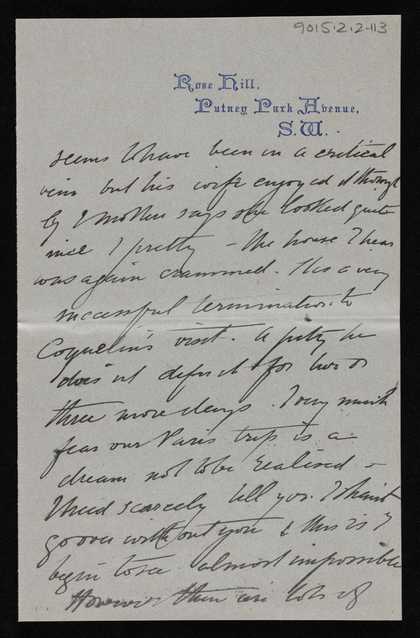 9015.2.2-113
Rose Hill,
Putney Park Avenue,
S.W.
seems to have been in a critical
vein but his wife enjoyed it thorough
ly & mother says she looked quite
nice & pretty – the house I hear
was again crammed. It is a very
successful termination to
Coquelin's visit. A pity he
does n't defer it for two or
three more days. I very much
fear our Paris trip is a
dream not to be realised –
I need scarcely tell you I shan't
go over without you & this as I
begin to see almost impossible
However there are lots of